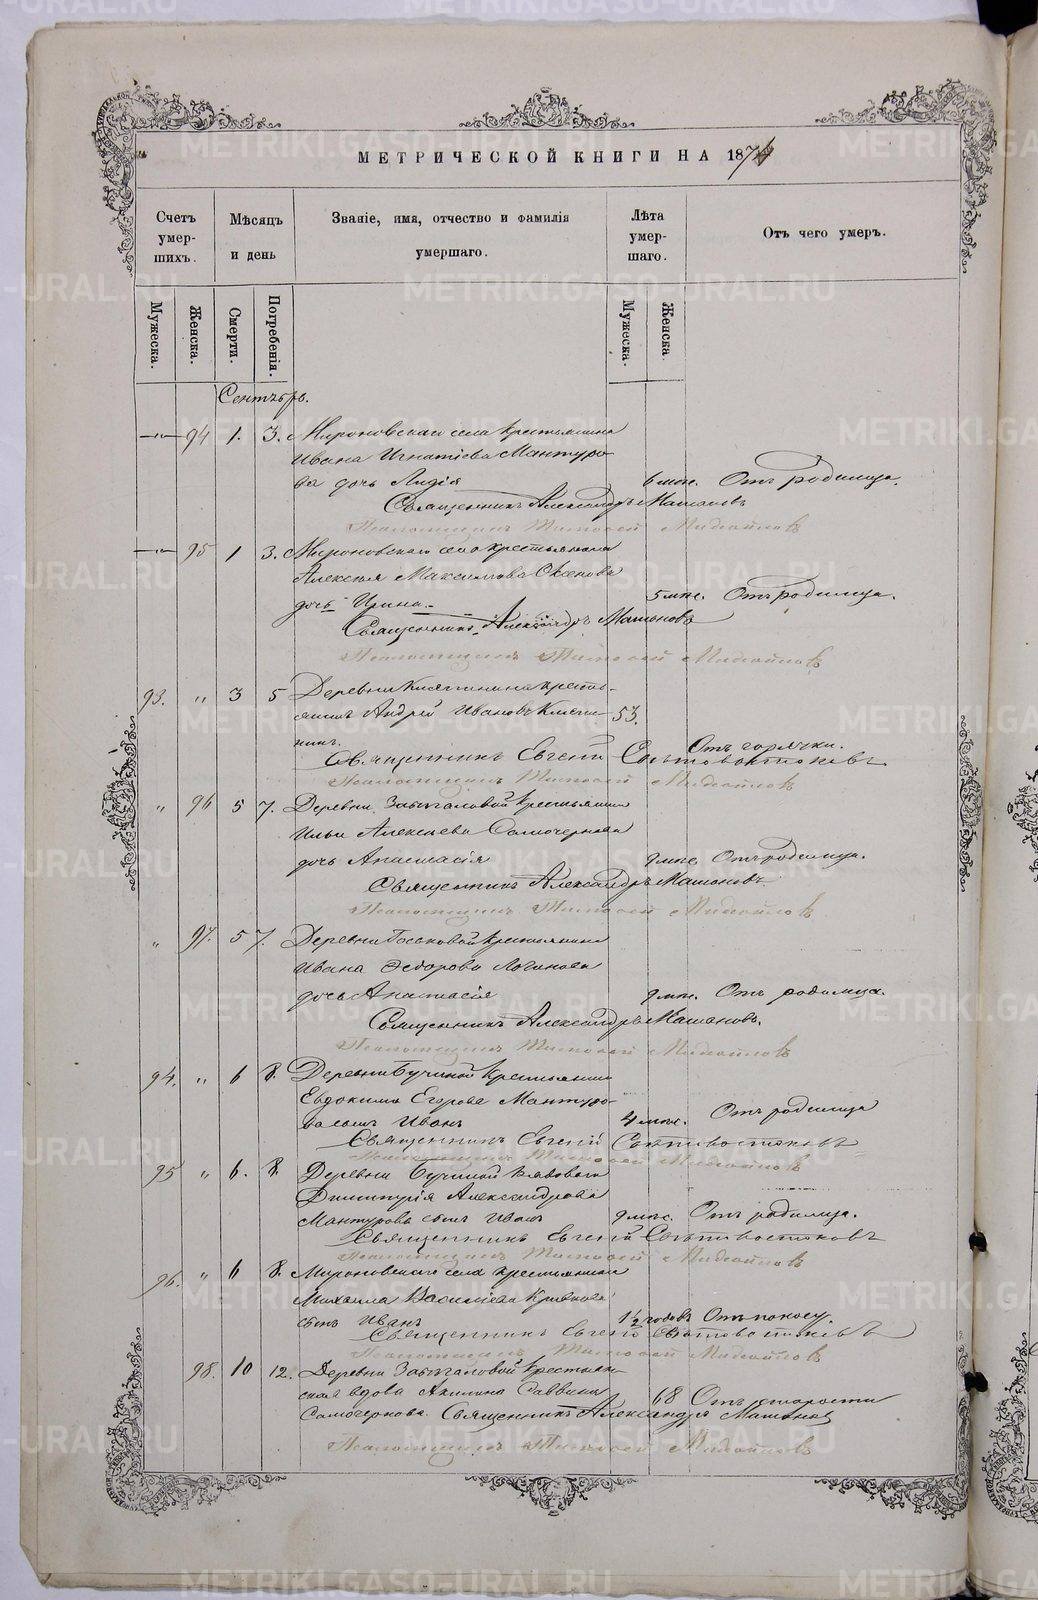 МЕТРИЧЕСКОЙ КНИГИ НА 1874
Счетъ умер-шихъ.
Мѣсяцъ и день
Званіе, имя, отчество и фамилія умершаго.
Лѣта умер-шаго.
Отъ чего умеръ.
Мужеска.
Женска.
Смерти.
Погребенія.
Мужеска.
Женска.
Сентябрь.
94 1. 3. Мироновскаго села крестьянина
Ивана Игнатіева Мантуро-
ва дочь Лидія 6 мѣс. Отъ родимца.
Священникъ Александръ Машановъ
Псаломщикъ Михайловъ
95 1 3. Мироновскаго села крестьянина
Алексѣя Максимова
дочь Ирина. 5 мѣс. Отъ родимца.
Священникъ Александръ Машановъ
Псаломщикъ Михайловъ
93. " 3 5 Деревни кресть-
янинъ Андрей Ивановъ 53.
никъ. Отъ горячки.
Священникъ Евгеній
Псаломщикъ Михайловъ
" 96 5 7. Деревни крестьянина
Ильи Алексѣева Самочернова
дочь Анастасія 9 мѣс. Отъ родимца.
Священникъ Александръ Машановъ.
Псаломщикъ Михайловъ
" 97. 5 7. Деревни крестьянина
Ивана Ѳедорова Логинова
дочь Анастасія 9 мѣс. Отъ родимца.
Священникъ Александръ Машановъ.
Псаломщикъ Михайловъ
94. " 6 8. Деревни Бучиной крестьянина
Евдокима Егорова Мантуро-
ва сынъ Иванъ 4 мѣс. Отъ родимца
Священникъ Евгеній
Псаломщикъ Михайловъ
95 " 6. 8. Деревни Бучиной рядоваго
Димитрія Александрова
Мантурова сынъ Иванъ 9 мѣс. Отъ родимца.
Священникъ Евгеній
Псаломщикъ Михайловъ
96. " 6 8. Мироновскаго села крестьянина
Михаила Василіева
сынъ Иванъ 1½ годовъ Отъ поносу.
Священникъ Евгеній
Псаломщикъ Михайловъ
98. 10 12. Деревни крестьян-
ская вдова Акилина Саввина
Самочернова. 68 Отъ старости
Священникъ Александръ Машановъ
Псаломщикъ Михайловъ
METRIKI.GASO-URAL.RU